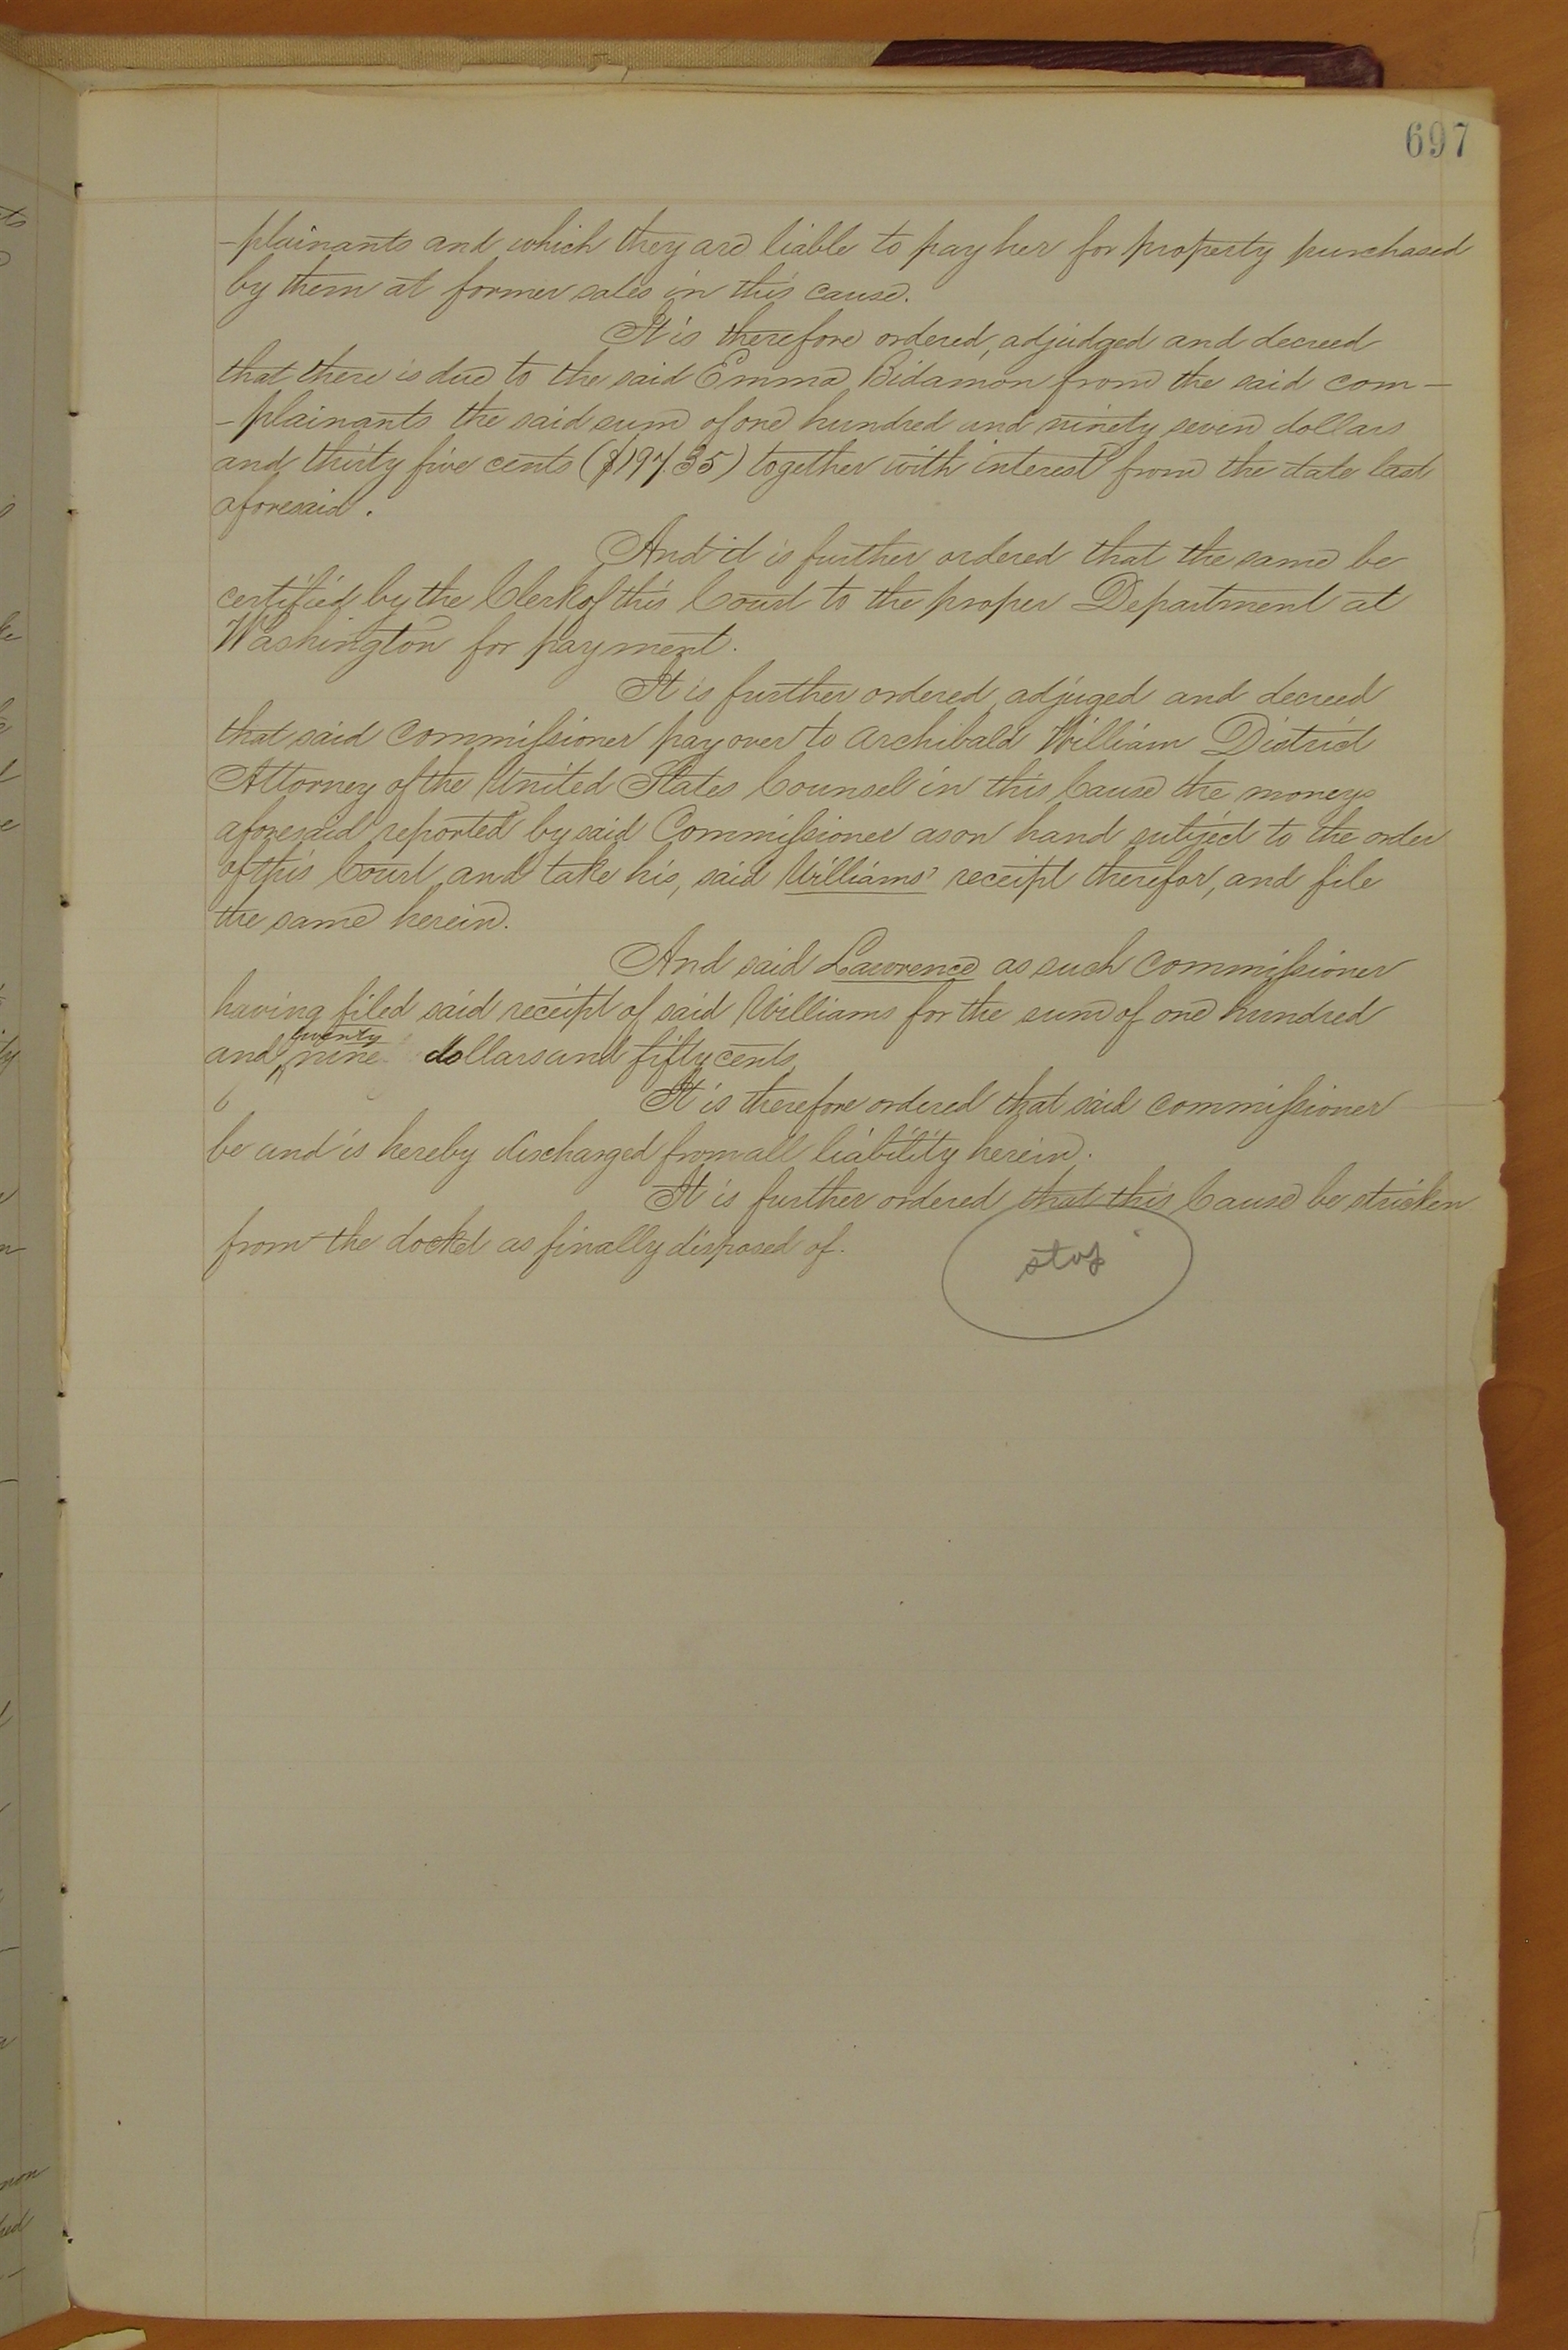 697
-plainants and which they are liable to pay her for property purchased
by them at former sales in this cause.
It is therefore ordered, adjudged and decreed
that there is due to the said Emma Bidamon from the said com-
-plainants the said sum of one hundred and ninety seven dollars
and thirty five cents ($197/35) together with interest from the date last
aforesaid.
And it is further ordered that the same be
certified by the Clerk of this Court to the proper Department at
Washington for payment.
It is further ordered, adjuged and decreed
that said Commissioner pay over to Archibald William District
Attorney of the United States Counsel in this Cause the moneys
aforesaid reported by said Commissioner as on hand subject to the order
of this Court and take his, said Williams' receipt therefor, and file
the same herein.
And said Lawrence as such Commissioner
having filed said receipt of said Williams for the sum of one hundred
and twenty nine dollars and fifty cents,
It is therefore ordered that said commissioner
be and is hereby discharged from all liability herein.
It is further ordered that this Cause be stricken
from the docket as finally disposed of.
stop